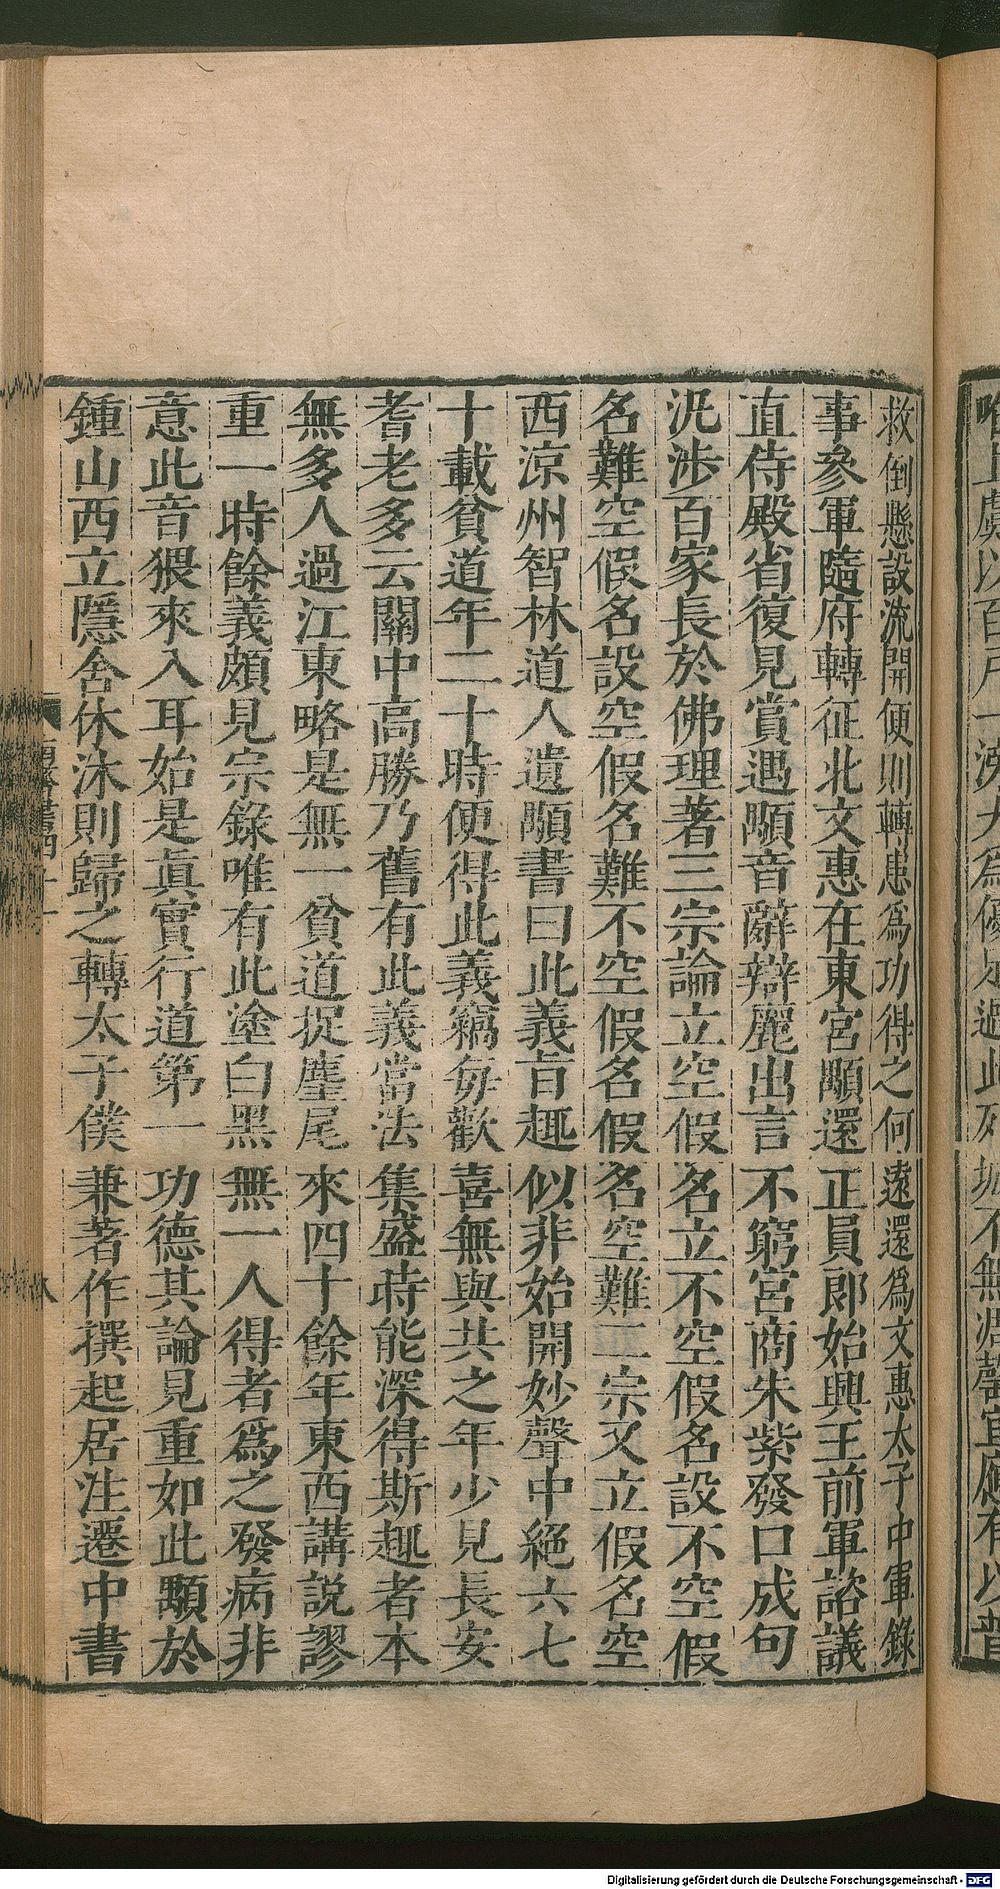 救倒懸設流開便則轉患爲功得之何遠還爲文惠太子中軍錄
事參軍隨府轉征北文惠在東宮顒還正員郎始興王前軍諮議
直侍殿省復見賞遇顒音辭辯麗出言不窮宮商朱紫發口成句
汎涉百家長於佛理著三宗論立空假名立不空假名設不空假
名難空假名設空假名難不空假名假名空難二宗又立假名空
西涼州智林道人遺顒書曰此義旨趣似非始開妙聲中絕六七
十載貧道年二十時便得此義竊每歡喜無與共之年少見長安
耆老多云關中高勝乃舊有此義當法集盛時能深得斯趣者本
無多人過江東略是無一貧道捉麈尾來四十餘年東西講說謬
重一時餘義頗見宗錄唯有此塗白黑無一人得者爲之發病非
意此音猥來入耳始是眞實行道第一功德其論見重如此顒於
鍾山西立隱舍休沐則歸之轉太子僕兼著作撰起居注遷中書
八
Digitalisierung gefördert durch die Deutsche Forschungsgemeinschaft - DFG